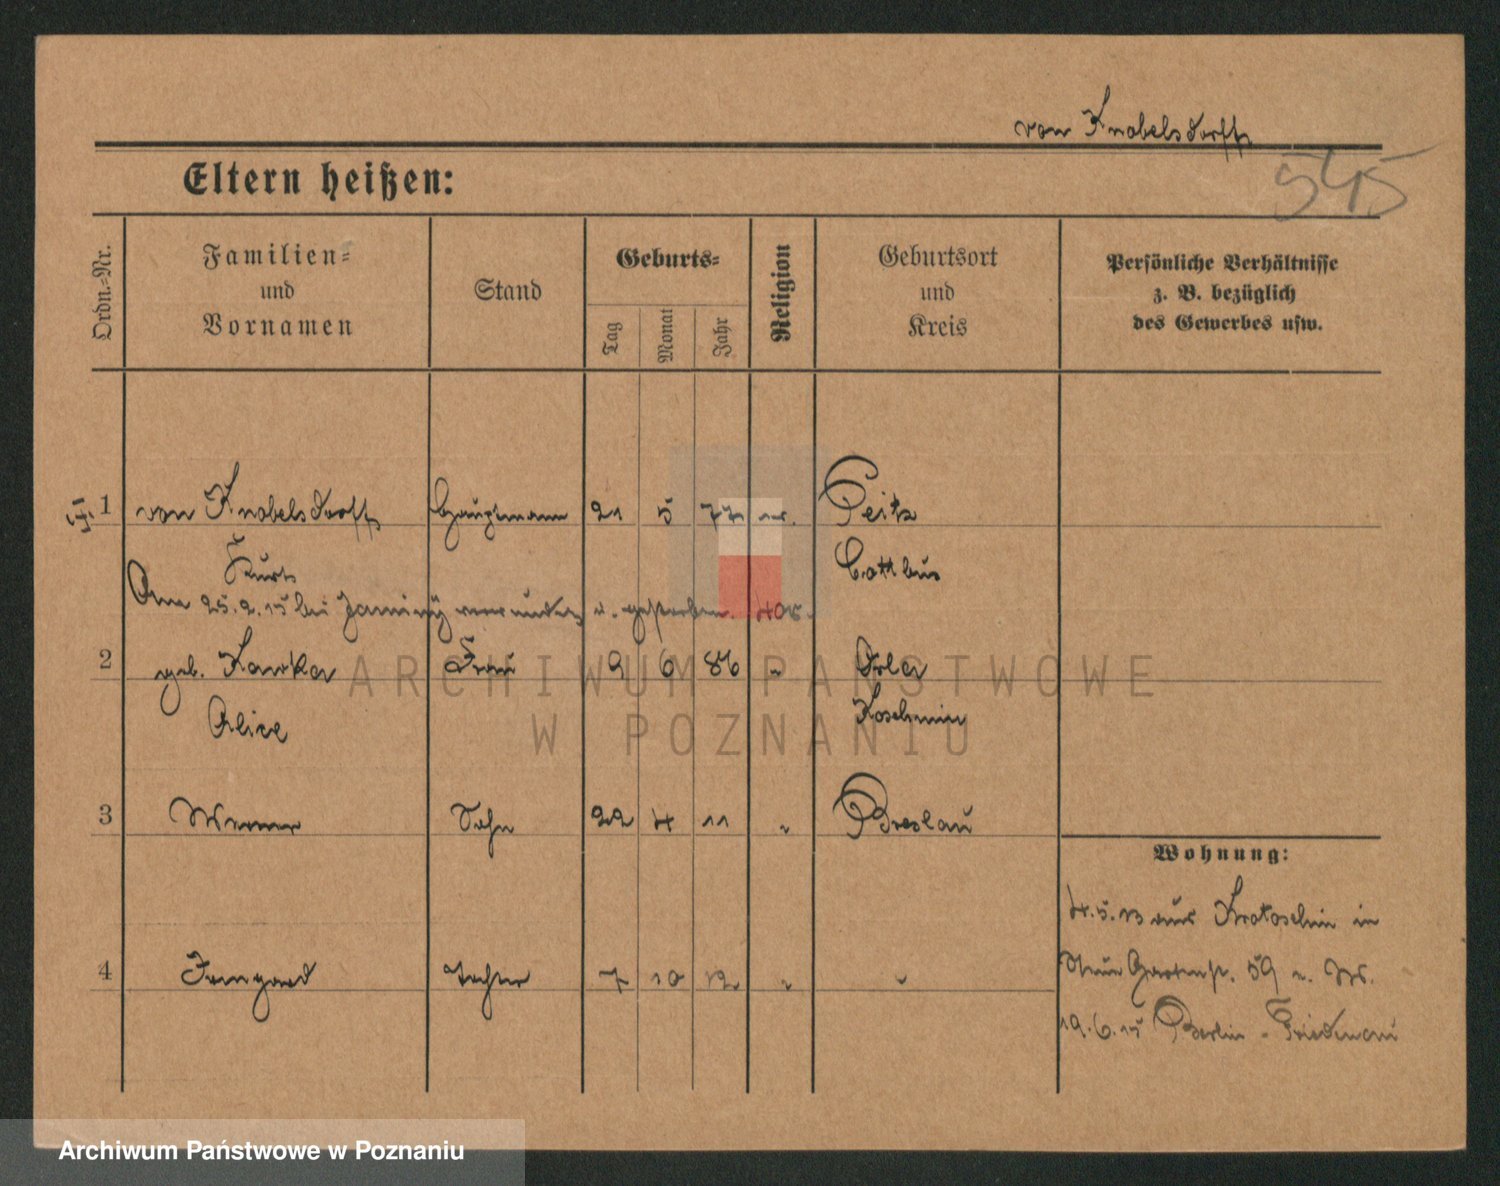 von Knobelsdorff
545
Eltern heißen:
Ordn.-Nr.
Familien-
und
Vornamen
Stand
Geburts-
Tag
Monat
Jahr
Religion
Geburtsort
und
Kreis
Persönliche Verhältnisse
z. B. bezüglich
des Gewerbes usw.
1 von Knobelsdorff Hauptmann 21 5 77 ev. Peitz
Kurt Cottbus
Am 25.2.15 bei verwundet u. gestorben.
2 geb. Frau 9 6 86 " Orla
Alice Koschmin
3 Werner Sohn 22 4 11 " Breslau
4 Irmgard Tochter 7 10 12 " "
Wohnung:
4.5.13 aus Krotoschin in
Neue Gartenstr. 59 u. W.
19.6.15 Berlin - Friedenau
ARCHIWUM PAŃSTWOWE
W POZNANIU
Archiwum Państwowe w Poznaniu